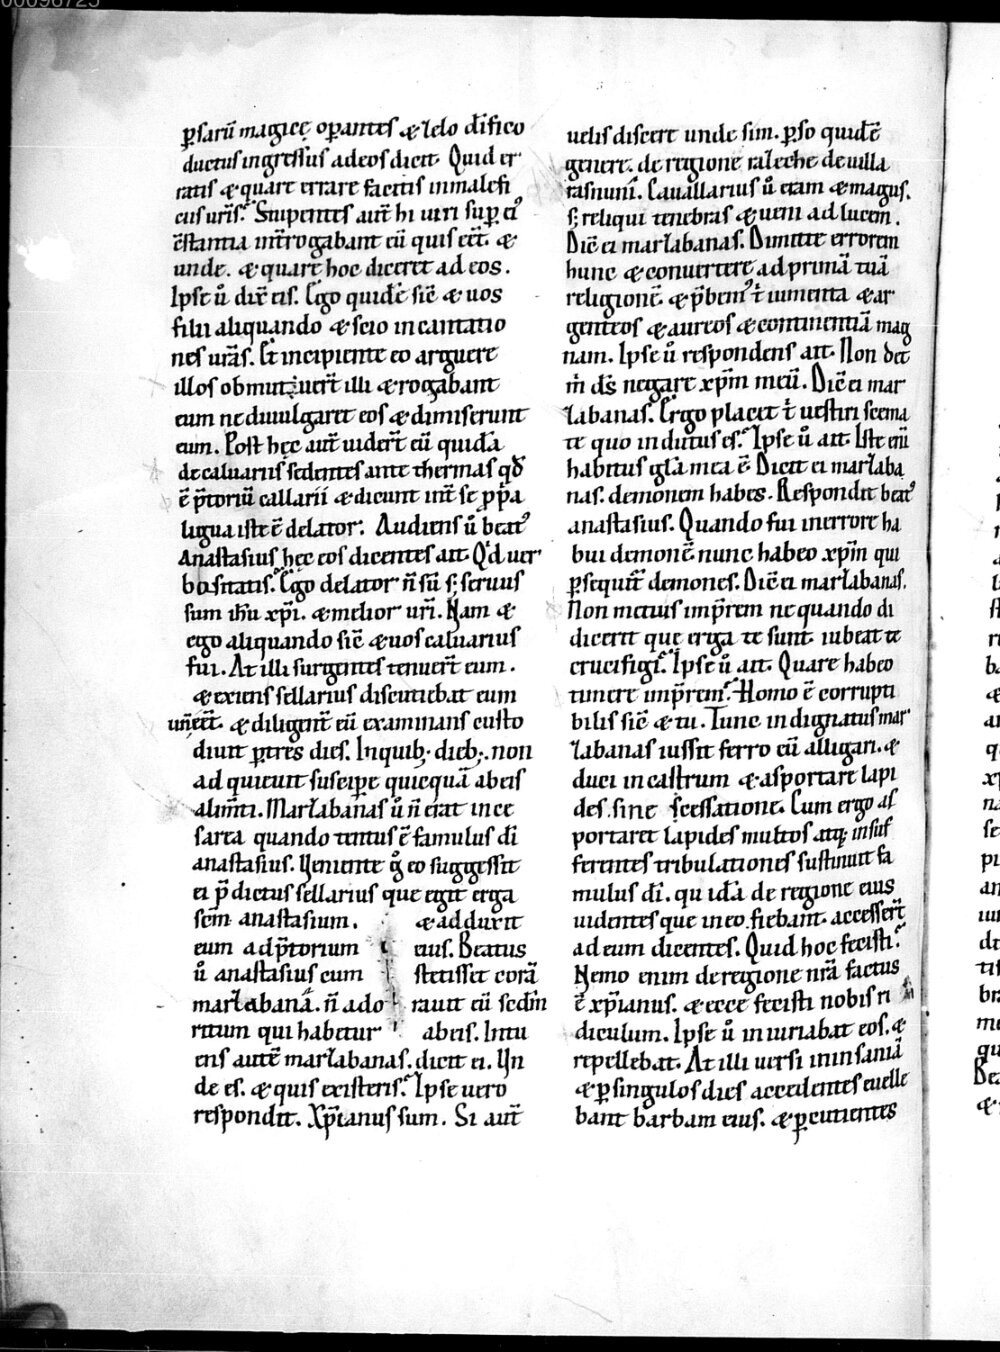 00096725
ꝑsarū magicę opantes & zelo dīfico
ductus ingressus ad eos dicit. Quid er
ratis & quare errare facitis in malefi
ciis uīris. Stupentes aut̄ hi uiri sup̄ ei᾽
c̄stantia int̄rogabant eū quis eēt. &
unde. & quare hoc diceret ad eos.
Ipse ū dix̄ eis. Ego quidē sic̄ & uos
filii aliquando & scio incantatio
nes ur̄as. Et incipiente eo arguere
illos obmutuer̄t illi & rogabant
eum ne diuulgaret eos & dimiserunt
eum. Post hęc aut̄ uider̄t eū quidā
de caluariis sedentes ante thermas qd̄
ē p̄toriū callarii & dicunt int̄ se ꝓp̄a
ligua iste ē delator. Audiens ū beat᾽
Anastasius hęc eos dicentes ait. Qd̄ uer
bositatis. Ego delator n̄ sū s; seruus
sum ihū xp̄i. & melior ur̄i. Nam &
ego aliquando sic̄ & uos caluarius
fui. At illi surgentes tenuer̄t eum.
& exiens sellarius discutiebat eum
un̄ eēt. & diligent̄ eū examinans custo
diuit ꝑ tres dies. In quib; dieb; non
ad quieuit suscipe quicquā ab eis
alim̄ti. Marzabanas ū n̄ erat in ce
sarea quando tentus ē famulus dī
anastasius. Ueniente g̊ eo suggessit
ei p̄dictus sellarius que egit erga
scm̄ anastasium. & adduxit
eum ad p̄torium eius. Beatus
ū anastasius cum stetisset corā
marzabanā. n̄ adorauit eū scdm̄
ritum qui habetur ab eis. Intu
ens autē marzabanas. dicit ei. Un
de es. & quis existeris. Ipse uero
respondit. Xp̄ianus sum. Si aut̄
uelis discere unde sim. ꝑso quidē
genere. de regione raleche de uilla
rasnuni. Cauallarius ū etam & magus.
s; reliqui tenebras & ueni ad lucem.
Dic̄ ei marzabanas. Dimitte errorem
hunc & conuertere ad primā tuā
religionē. & p̄bem᾽ t̄ iumenta & ar
genteos & aureos & continentiā mag
nam. Ipse ū respondens ait. Non det
m̄ ds̄ negare xp̄m meū. Dic̄ ei mar
zabanas. Ergo placet t̄ uestiri scema
te quo indutus es. Ipse ū ait. Iste eni
habitus gl̄a mea ē. Dicit ei marzaba
nas. demonem habes. Respondit beat᾽
anastasius. Quando fui in errore ha
bui demonē nunc habeo xp̄m qui
ꝑsequit̄ demones. Dic̄ ei marzabanas.
Non metuis imp̄rem ne quando di
dicerit que erga te sunt iubeat te
crucifigi. Ipse ū ait. Quare habeo
timere imp̄rem. Homo ē corrupti
bilis sic̄ & tu. Tunc indignatus mar
zabanas iussit ferro eū alligari. &
duci in castrum & asportare lapi
des. sine cessatione. Cum ergo as
portaret lapides multos atq; insuf
ferentes tribulationes sustinuit fa
mulus dī. quidā de regione eius
uidentes que in eo fiebant. accesser̄t
ad eum dicentes. Quid hoc fecisti.
Nemo enim de regione nr̄a factus
ē xp̄ianus. & ecce fecisti nobis ri
diculum. Ipse ū iniuriabat eos. &
repellebat. At illi uersi in insaniā
& ꝑ singulos dies accedentes euelle
bant barbam eius. & ꝑcutientes